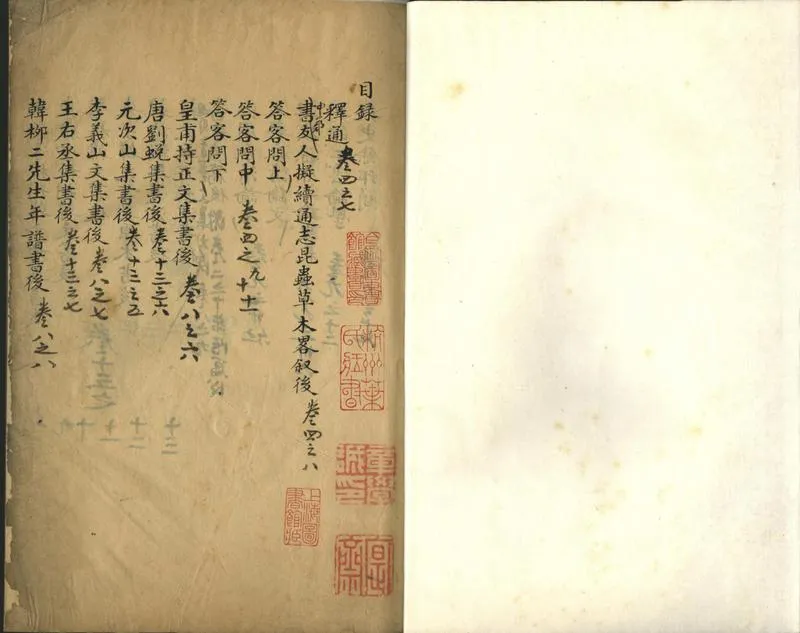 目録
釋通 卷四之七
書友人擬續通志昆蟲草木畧叙後 卷四之八
答客問上
答客問中 卷四之九 十 十一
答客問下
皇甫持正文集書後 卷八之六
唐劉蛻集書後 卷十三之六
元次山集書後 卷十三之五
李義山文集書後 卷八之七
王右丞集書後 卷十三之七
韓柳二先生年譜書後 卷八之八
杭州葉氏藏書
上海圖書館藏